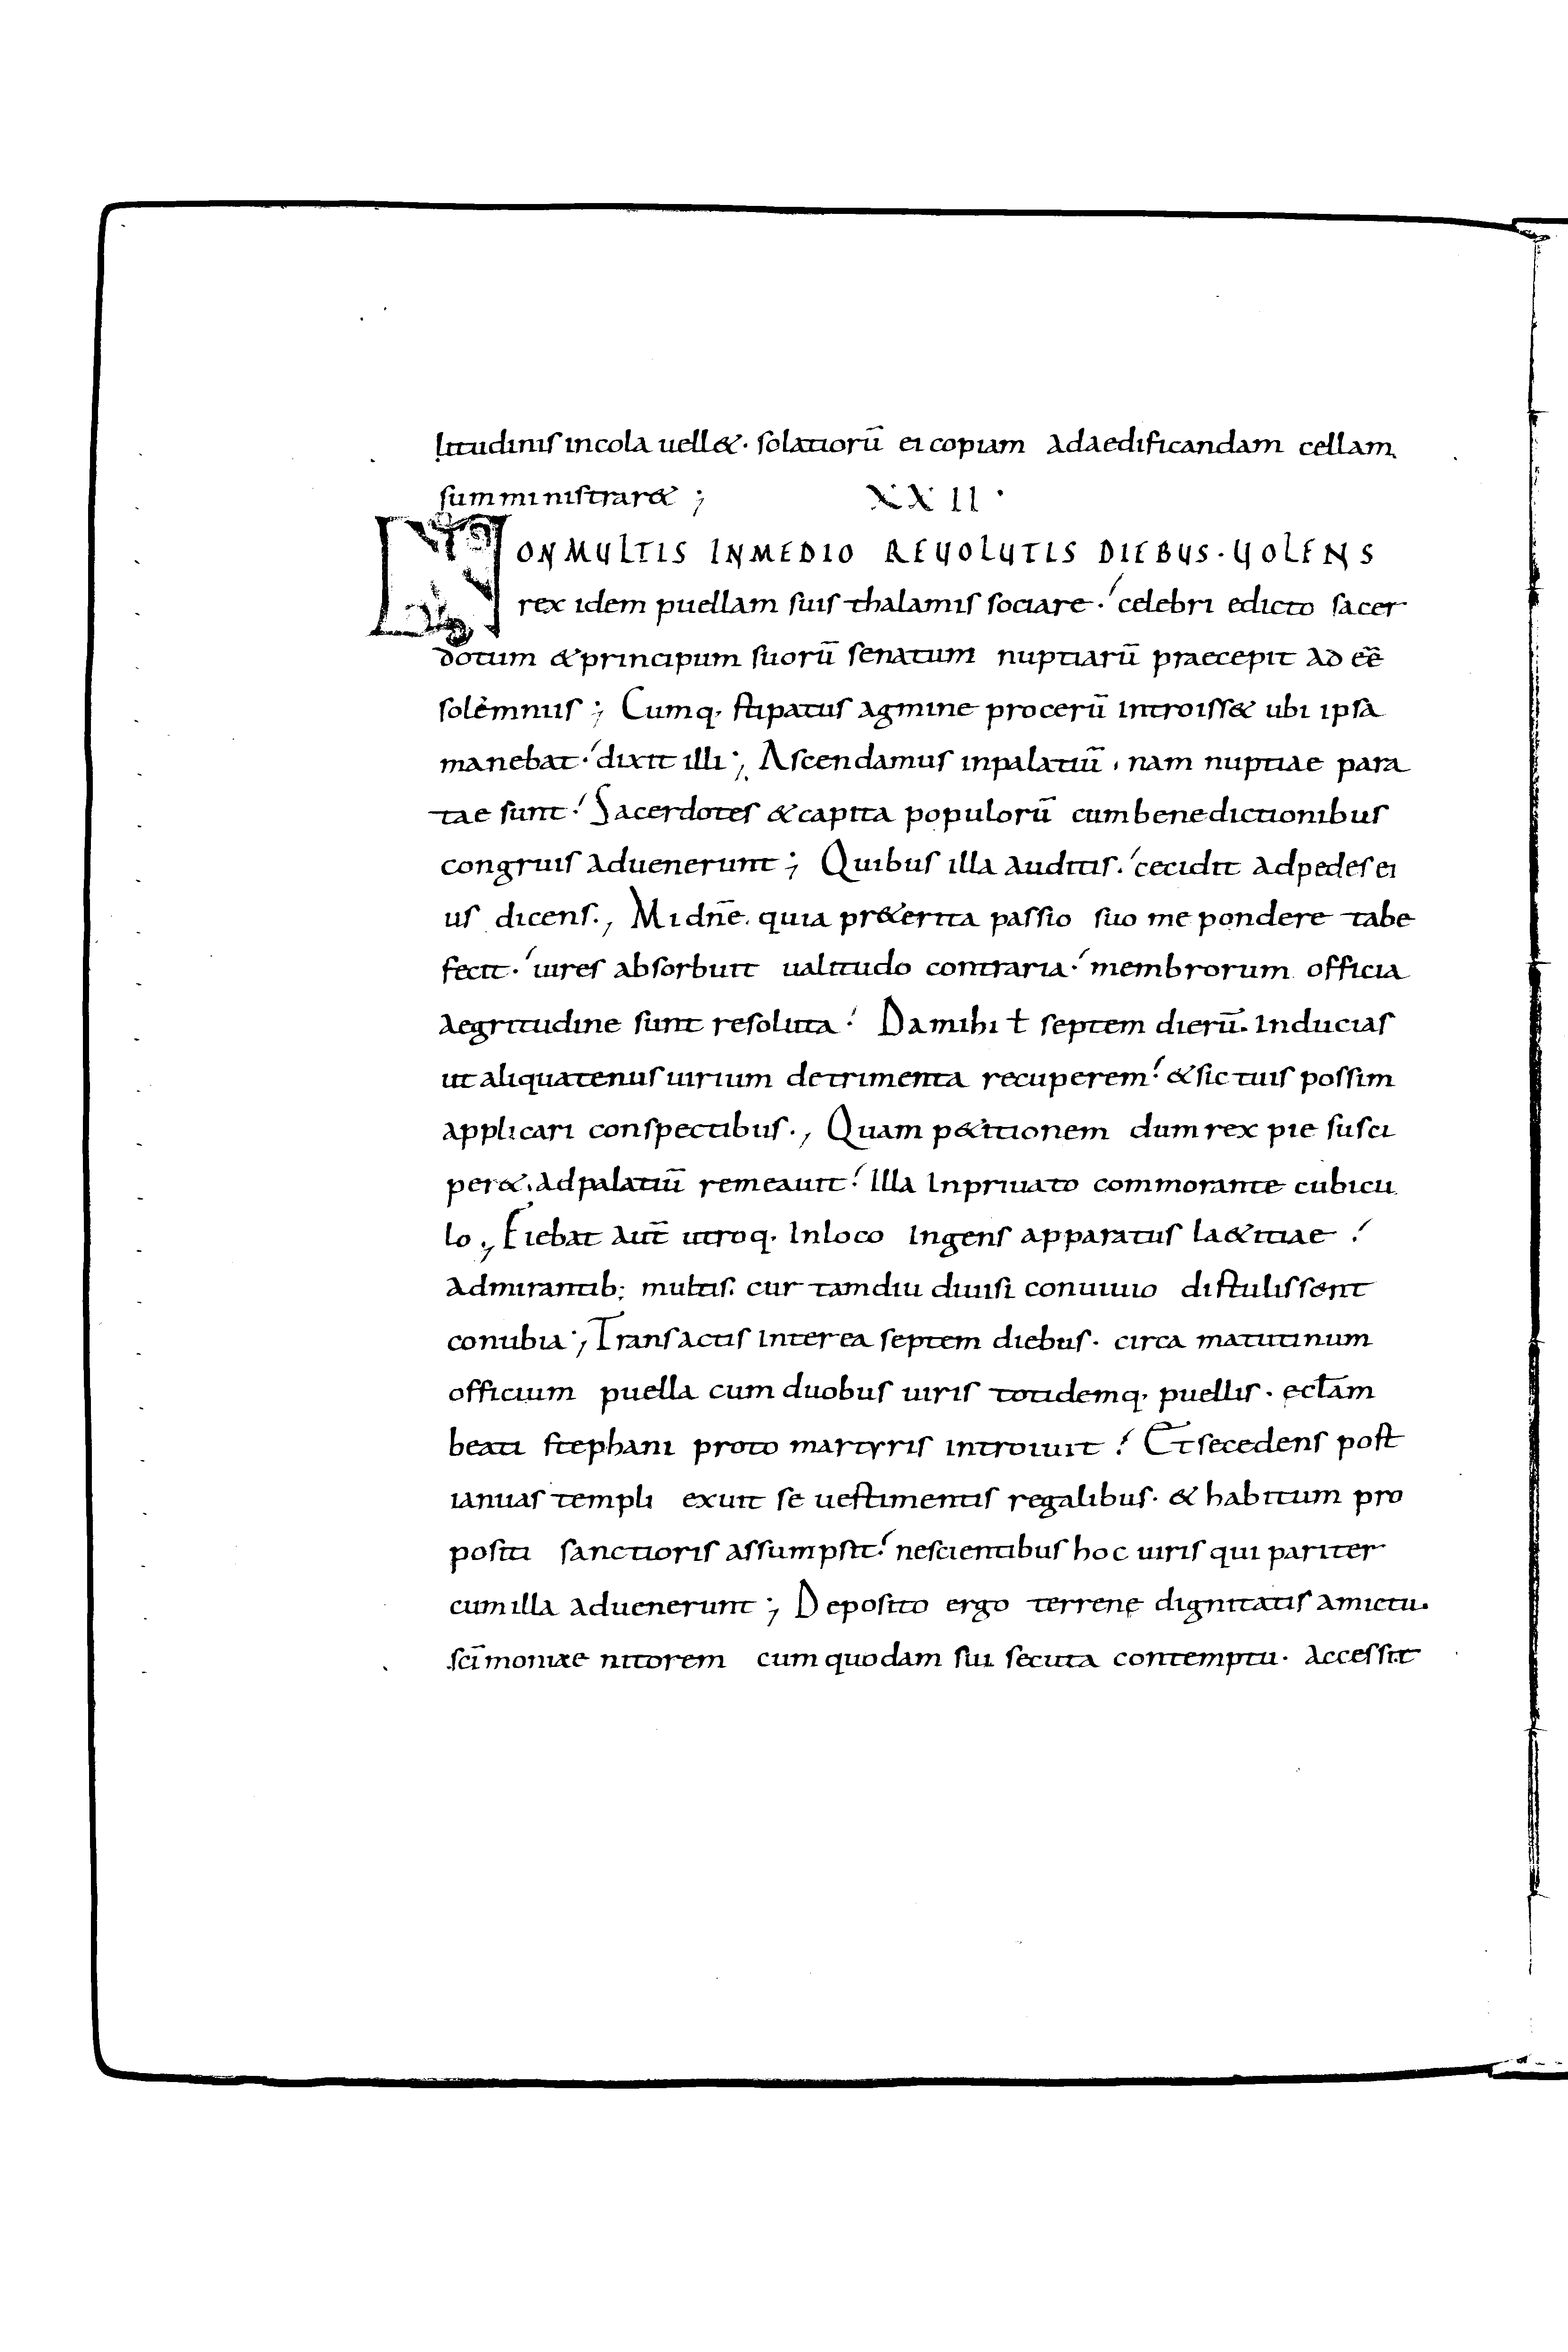 litudinis incola uell&. solatiorū ei copiam adaedificandam cellam
sumministrar& ; XXII.
NON MULTIS INMEDIO REUOLUTIS DIEBUS. UOLENS
rex idem puellam suis thalamis sociare. celebri edicto sacer
dotum & principum suorū senatum nuptiarū praecepit ad eē
solemniis ; Cumq. stipatus agmine procerū introiss& ubi ipsa
manebat. dixit illi ; Ascendamus inpalatiū, nam nuptiae para
tae sunt. Sacerdotes & capita populorū cumbenedictionibus
congruis aduenerunt ; Quibus illa auditis. cecidit adpedes ei
us dicens., Mi dn̄e. quia pr&erita passio suo me pondere tabe
fecit. uires absorbuit ualitudo contraria. membrorum officia
aegritudine sunt resoluta. Da mihi ł septem dierū. inducias
ut aliquatenus uirium detrimenta recuperem. & sic tuis possim
applicari conspectibus., Quam p&itionem dum rex pie susci
per&. adpalatiū remeauit. Illa inpriuato commorante cubicu
lo ; Fiebat aut̄ utroq. inloco ingens apparatus la&itiae.
admirantib; multis. cur tamdiu diuisi conuiuio distulissent
conubia ; Transactis interea septem diebus. circa matutinum
officium puella cum duobus uiris totidemq. puellis. ęcl̄am
beati stephani proto martyris introiuit. Et secedens post
ianuas templi exuit se uestimentis regalibus. & habitum pro
positi sanctioris assumpsit. nescientibus hoc uiris qui pariter
cum illa aduenerunt ; Deposito ergo terrenę dignitatis amictu.
sc̄imoniae nitorem cum quodam sui secuta contemptu. accessit